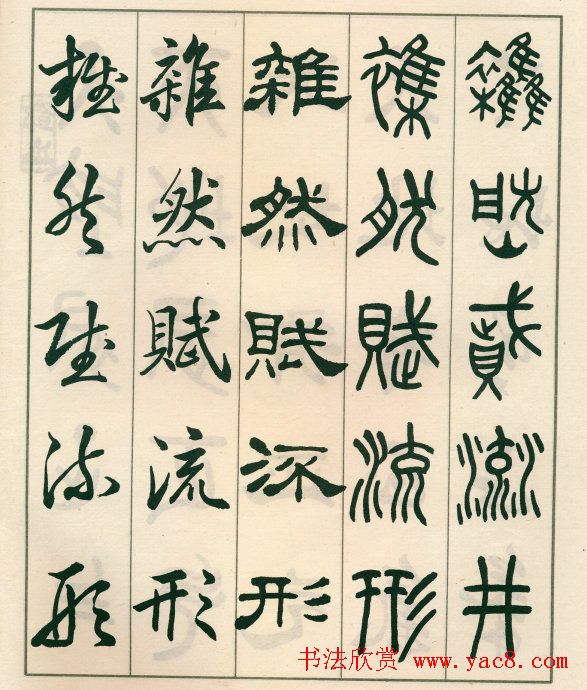 雜然賦流井
雜然賦流形
雜然賦流形
雜然賦流形
雜然賦流形
书法欣赏 www.yac8.com